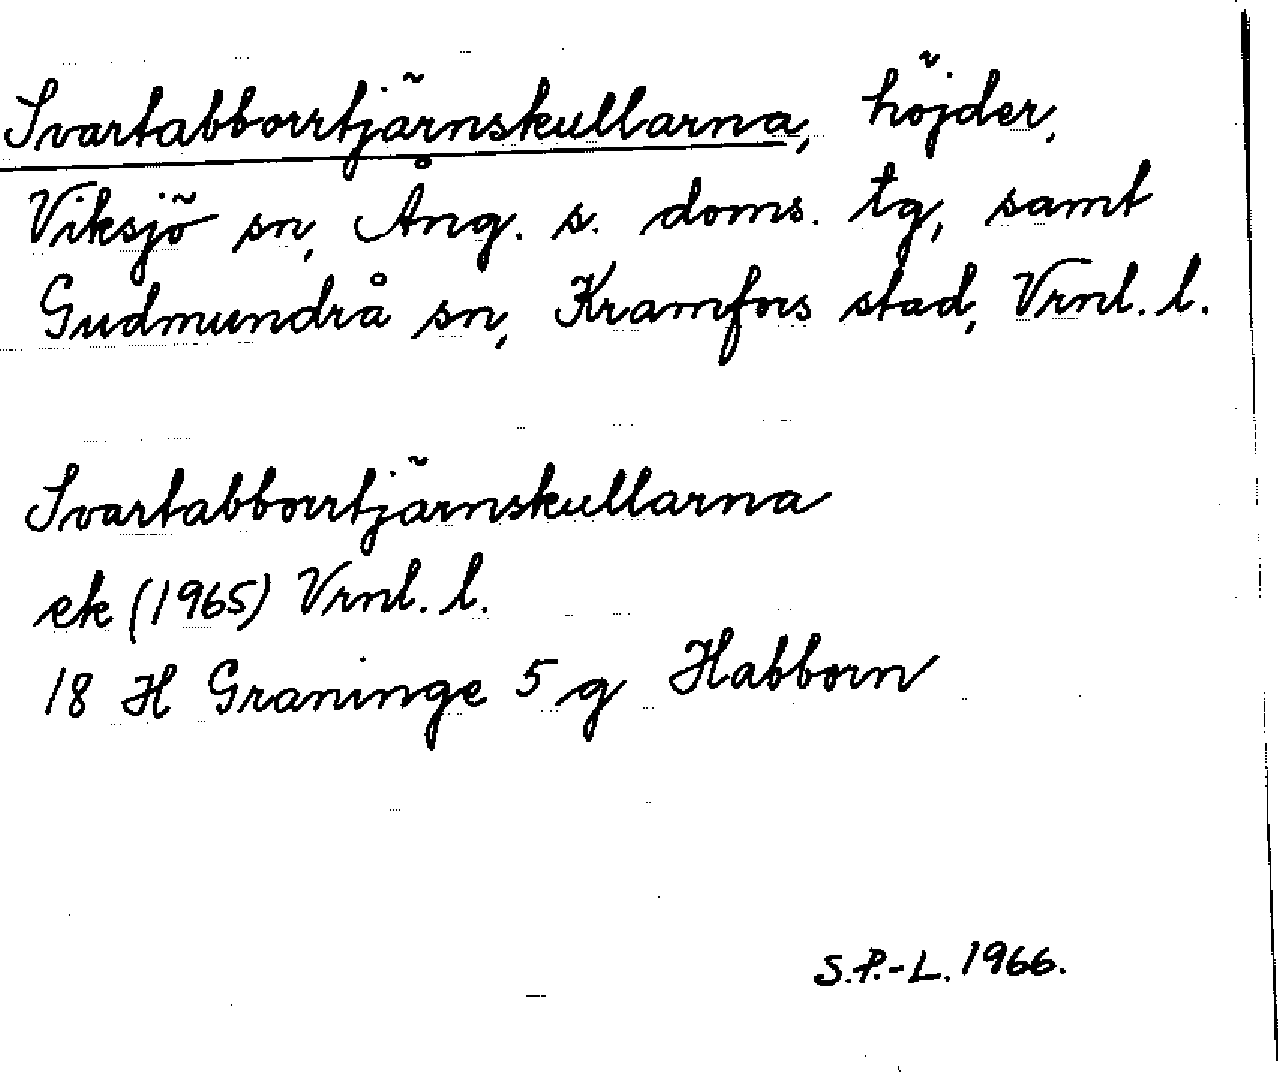 Svartabborrtjärnskullarna, höjder,
Viksjö sn, Ång. s. doms. tg, samt
Gudmundrå sn, Kramfors stad, Vrnl. l.
Svartabborrtjärnskullarna
ek (1965) Vrnl. l.
18 H Graninge 5 g Habborn
S.P.-L. 1966.